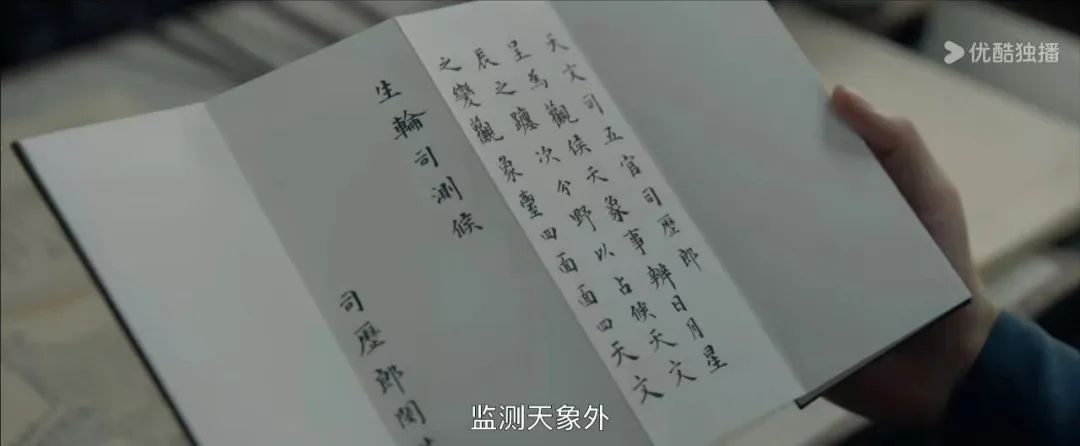 天文司五官司歷郎
呈為觀候天象事辨日月星
辰之躔次分野以占候天文
之變觀象臺四面面四天文
生輪司測候
司歷郎閔
监测天象外
优酷独播